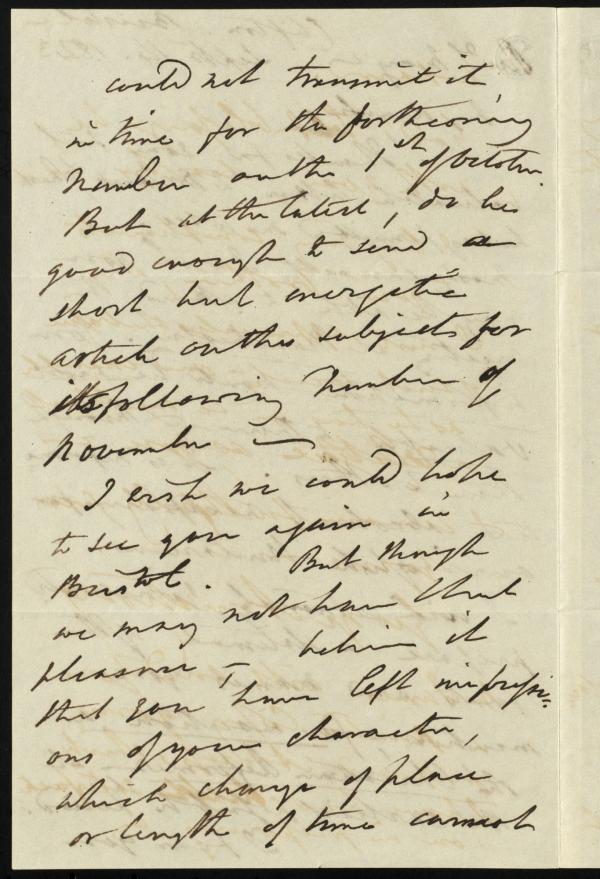 could not transmit it
in time for the forthcoming
number on the 1st of October.
But at the latest, do be
good enough to send a
short but energetic
article on this subject for
its following Number of
November —
I wish we could hope
to see you again in
Bristol. But though
we may not have that
pleasure — believe it
that you have left impressi=
ons of your character,
which change of place
or length of time cannot